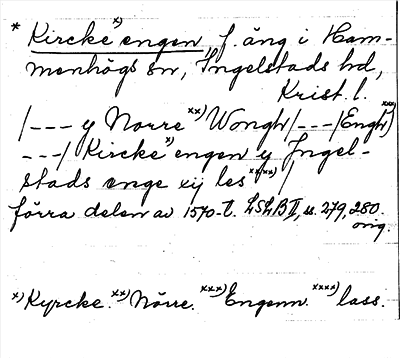 * Kircke x) engen f. äng i Ham-
menhögs sn, Ingelstads hd,
Krist. l.
/--- y Norre xx) Wongh/---/Engh xxx)
---/ Kircke x) engen y Jngel-
stads enge xij les xxxx) /
förra delen av 1570-t. LSLB II, s. 279, 280.
orig.
x) Kyrcke. xx) Nörre. xxx) Engenn. xxxx) lass.